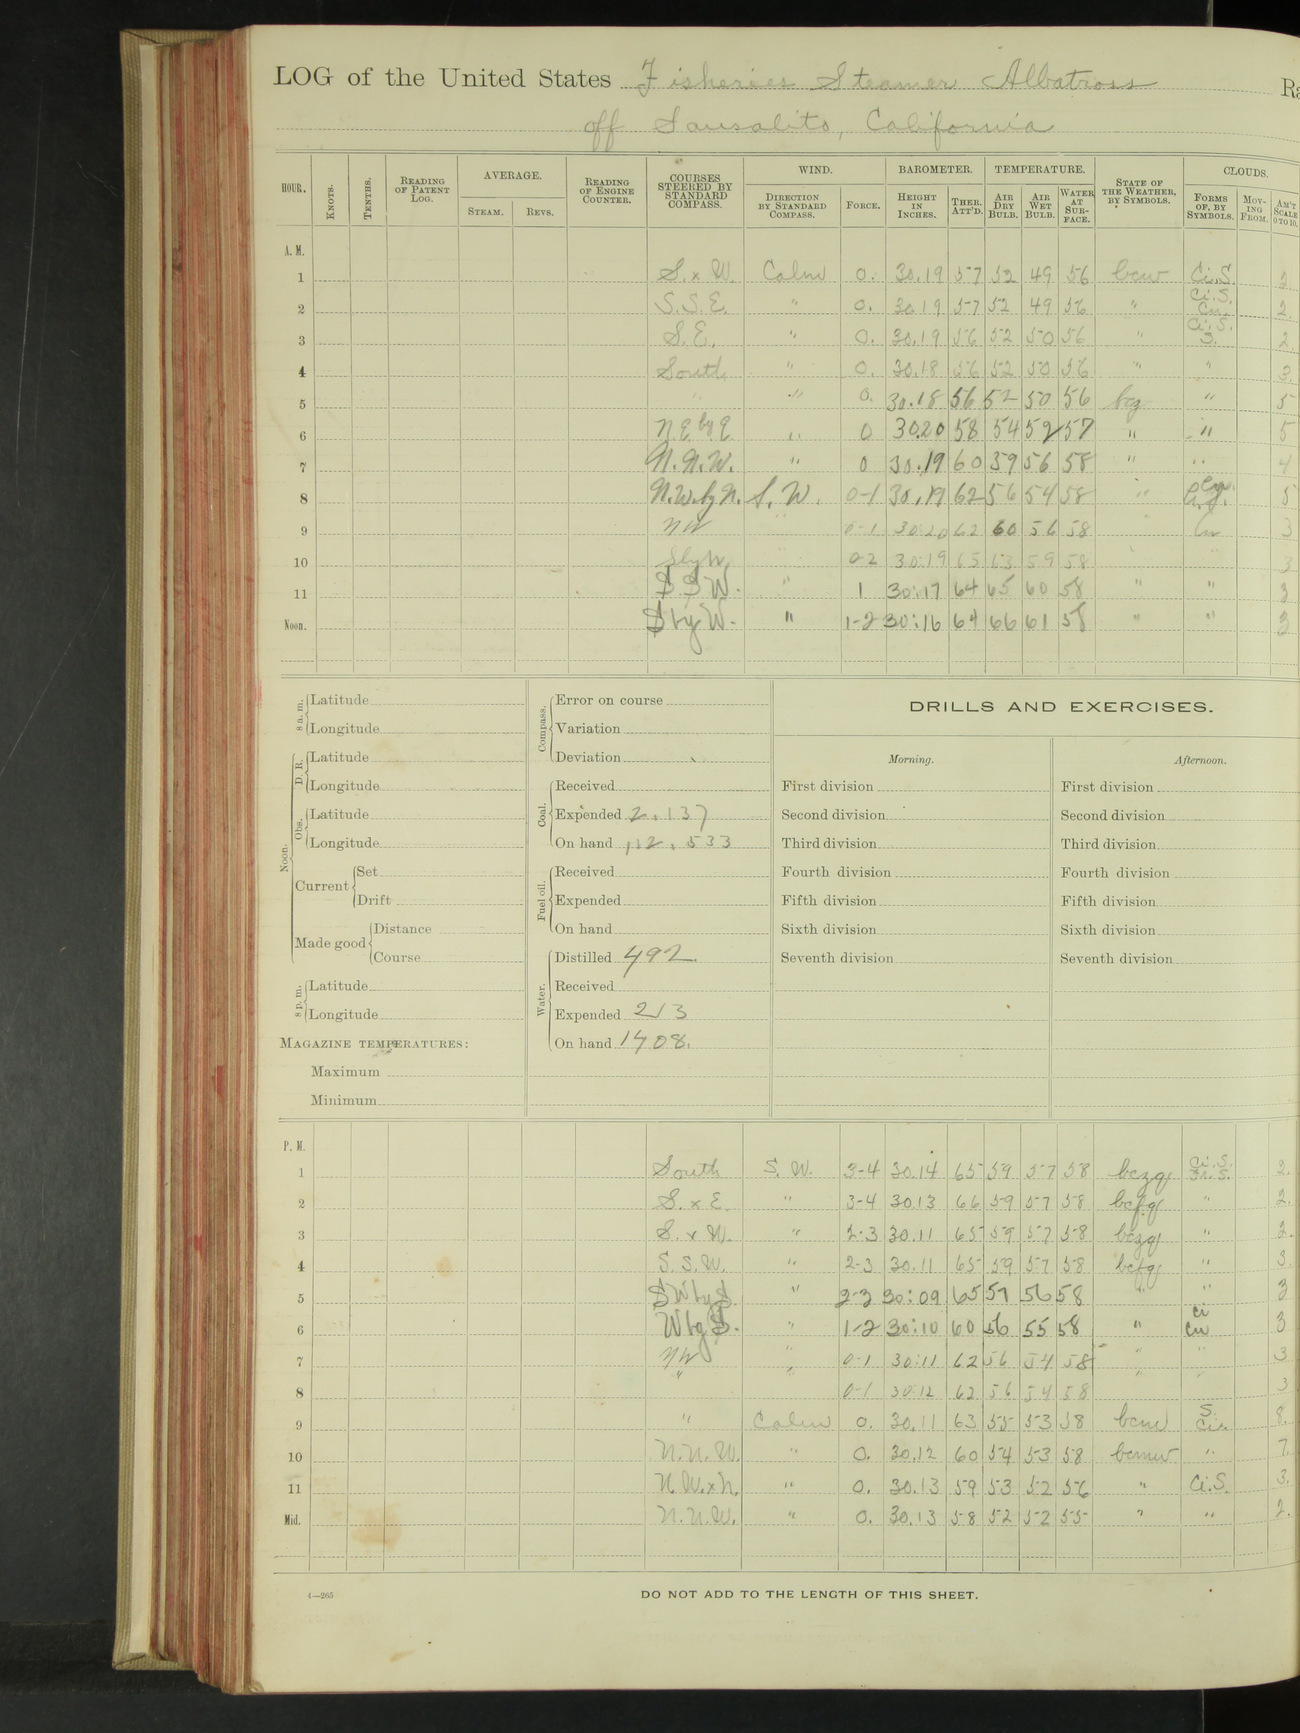 LOG of the United States Fisheries Steamer Albatross Ra
off Sausalito, California
HOUR. KNOTS. TENTHS. READING OF PATENT LOG. AVERAGE. STEAM. REVS. READING OF ENGINE COUNTER. COURSES STEERED BY STANDARD COMPASS. WIND. DIRECTION BY STANDARD COMPASS. FORCE. BAROMETER. HEIGHT IN INCHES. THER. ATT'D. TEMPERATURE. AIR DRY BULB. AIR WET BULB. WATER AT SURFACE. STATE OF THE WEATHER, BY SYMBOLS. CLOUDS. FORMS OF, BY SYMBOLS. MOVING FROM. AM'T SCALE 0 TO 10.
A. M.
1 S. x W. Calm 0. 30.19 57 52 49 56 bcw Ci.S. 2.
2 S.S.E. " 0. 30 19 57 52 49 56 " Ci.S. Cu. 2.
3 S.E. " 0. 30.19 56 52 50 56 " Ci.S. S. 2.
4 South " 0. 30.18 56 52 50 56 " " 3.
5 " " 0. 30.18 56 52 50 56 bcz " 5
6 N.E. by E. " 0 30.20 58 54 52 57 " " 5
7 N.N.W. " 0 30.19 60 59 56 58 " " 4
8 N.W. by N. S.W. 0-1 30.19 62 56 54 58 " 5
9 NW " 0-1 30:20 62 60 56 58 Cu 3
10 S by W. 0-2 30:19 65 63 59 58 " 3
11 SSW. " 1 30:17 64 65 60 58 " " 3
Noon. S by W. " 1-2 30:16 64 66 61 58 " " 3
8 a. m. Latitude
Longitude
Noon. D. R. Latitude
Longitude
Obs. Latitude
Longitude
Current Set
Drift
Made good Distance
Course
8 p. m. Latitude
Longitude
MAGAZINE TEMPERATURES:
Maximum
Minimum
Compass. Error on course
Variation
Deviation
Coal. Received
Expended 2.137
On hand 112.533
Fuel oil. Received
Expended
On hand
Water. Distilled 492.
Received
Expended 213
On hand 1408.
DRILLS AND EXERCISES.
Morning. Afternoon.
First division First division
Second division Second division
Third division Third division
Fourth division Fourth division
Fifth division Fifth division
Sixth division Sixth division
Seventh division Seventh division
P. M.
1 South S.W. 3-4 30.14 65 59 57 58 bczq Ci.S. 2.
2 S. x E. " 3-4 30.13 66 59 57 58 " 2.
3 S. x W. " 2-3 30.11 65 59 57 58 bczq " 2.
4 S.S.W. " 2-3 30.11 65 59 57 58 " 3.
5 SW by S. " 2-3 30:09 65 57 56 58 " " 3
6 W by S. " 1-2 30:10 60 56 55 58 " ci cu 3
7 NW " 0-1 30:11 62 56 54 58 " " 3
8 " " 0-1 30:12 62 56 54 58 " 3
9 " Calm 0. 30.11 63 55 53 58 bcm S. Cu. 8.
10 N.N.W. " 0. 30.12 60 54 53 58 bcmw " 7.
11 N.W. x N. " 0. 30.13 59 53 52 56 " Ci.S. 3.
Mid. N.N.W. " 0. 30.13 58 52 52 55 " " 2.
4—265
DO NOT ADD TO THE LENGTH OF THIS SHEET.